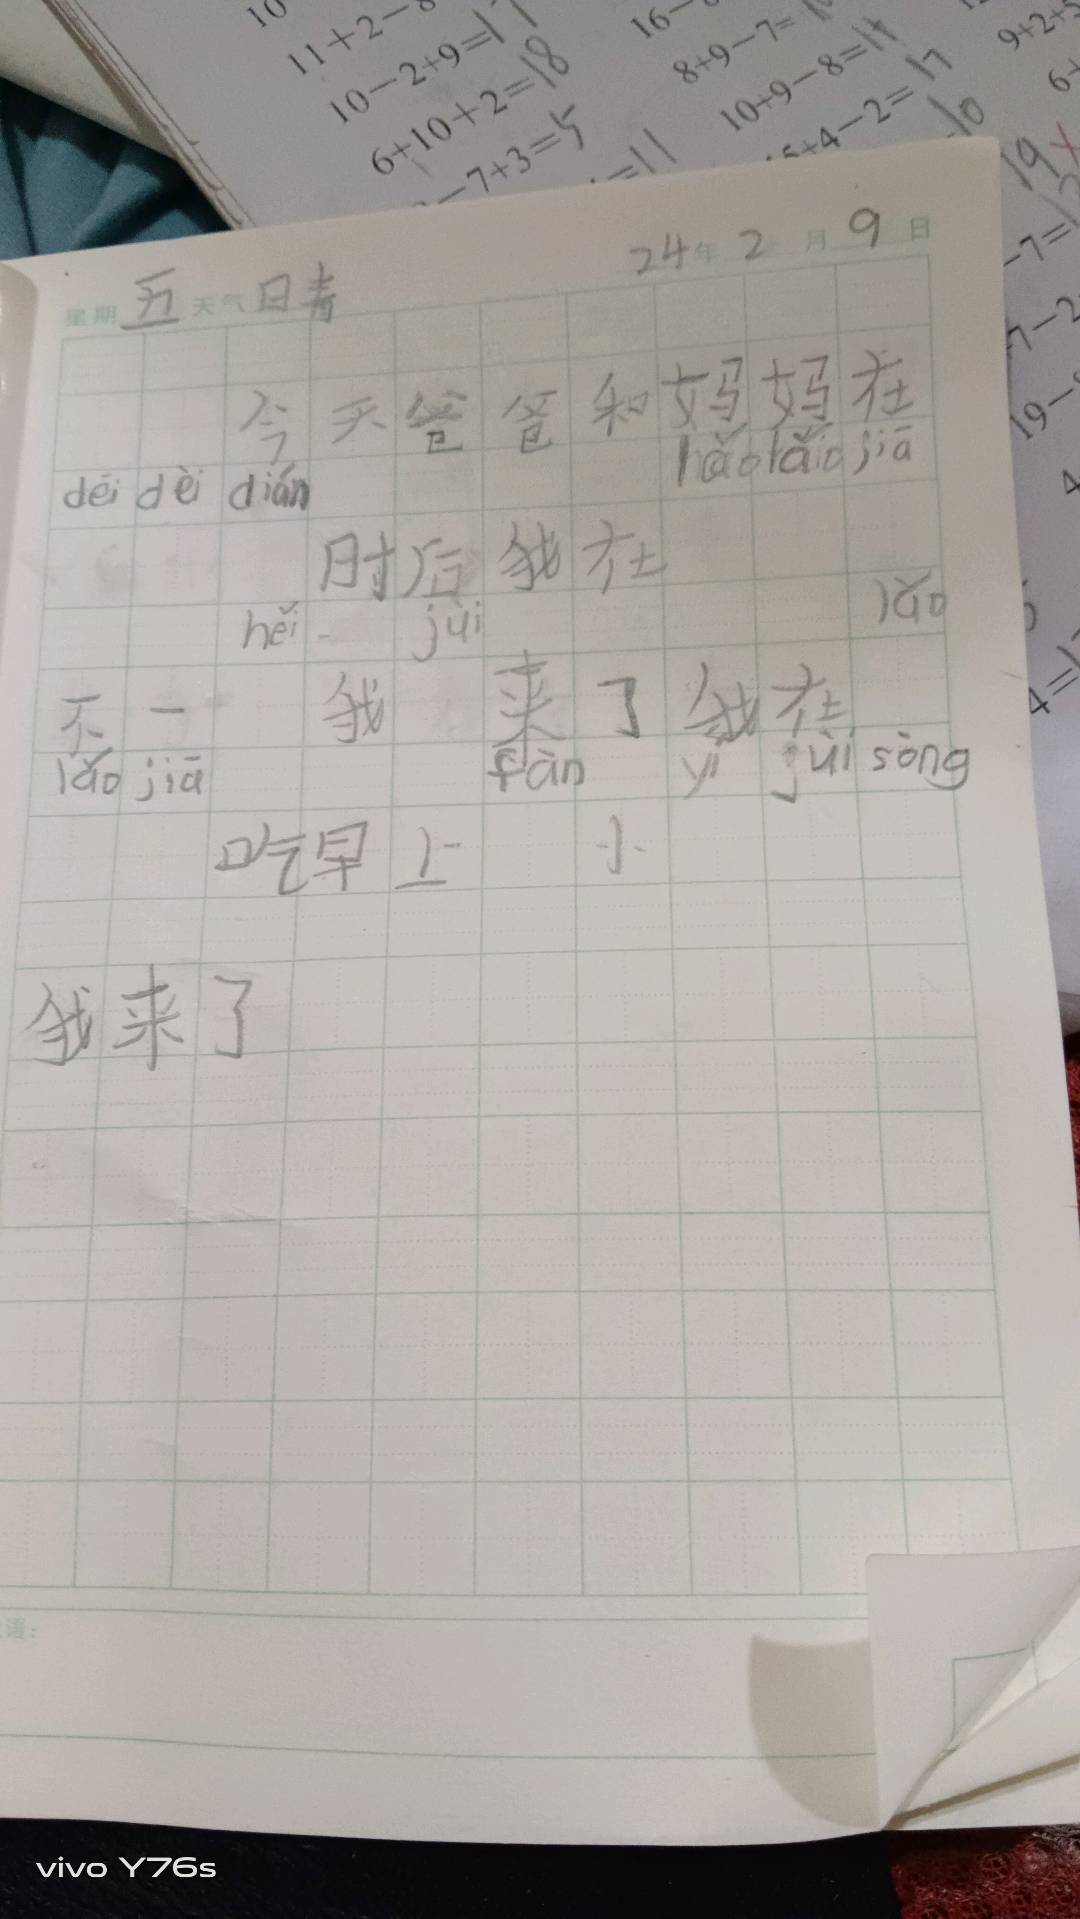 11+2-8
10-2+9=17
6+10+2=18
-7+3=5
=11
16-
8+9-7=
10+9-8=11
+4-2=17
9+2+5
6+
10
19
-7=
7-2
19-
4
4=1
24年 2 月 9 日
星期 五 天气 日青
今天爸爸和妈妈在
lǎo lǎo jiā
dēi dèi dián
时后我在
hěi jùi lǎo
不一 我 来了我在
lǎo jiā fàn yì jùi sòng
吃早上 小
我来了
语:
vivo Y76s